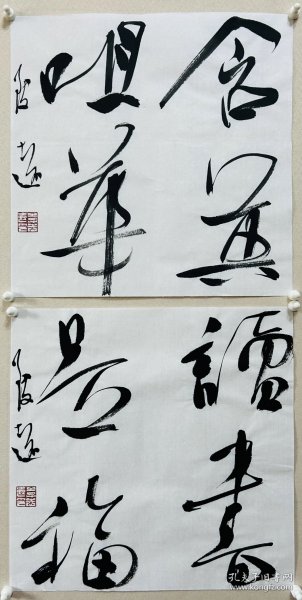 含英
咀華
讀書
是福
孔夫子旧书网
www.kongfz.com